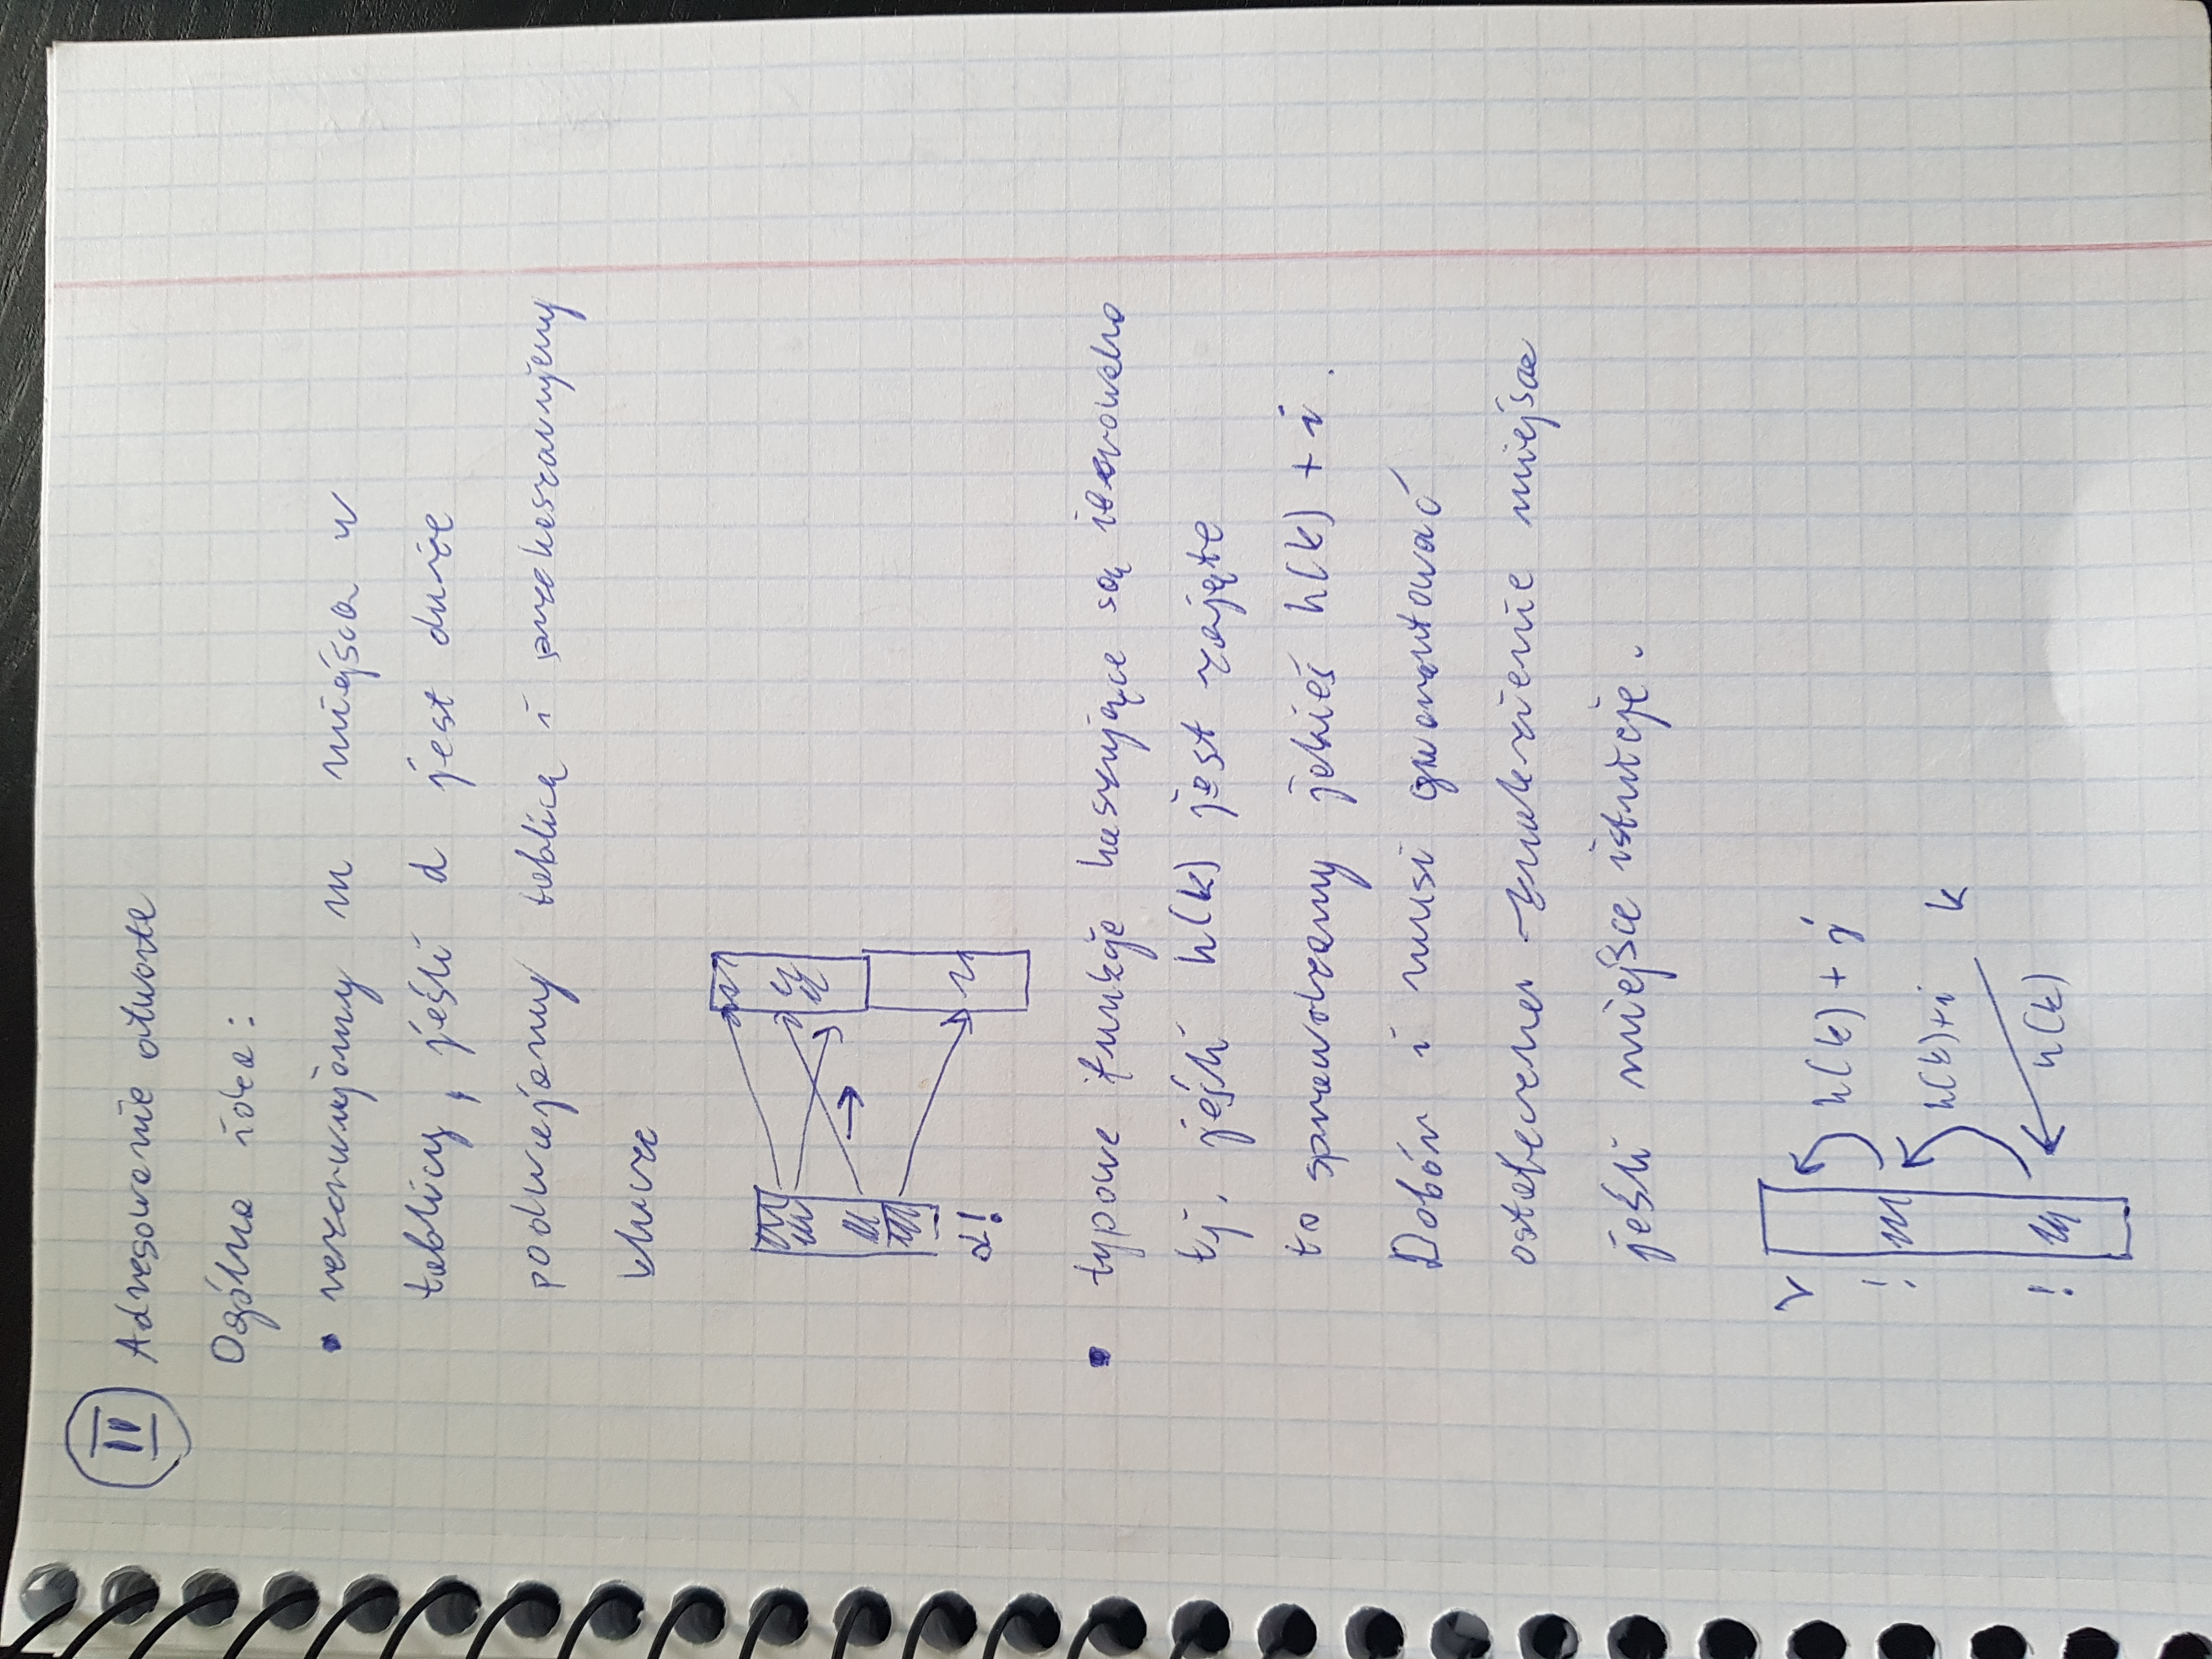 II Adresowanie otwarte
Ogólna idea:
• rezerwujemy m miejsca w
tablicy, jeśli d jest duże
podwajamy tablicę i przehaszowujemy
klucze
α!
• typowe funkcje haszujące są
tj. jeśli h(k) jest zajęte
to sprawdzamy jakieś h(k) + i.
Dobór i musi gwarantować
ostatecznei znalezienie miejsce
jeśli miejsce istnieje.
h(k) + j
h(k)+i k
h(k)